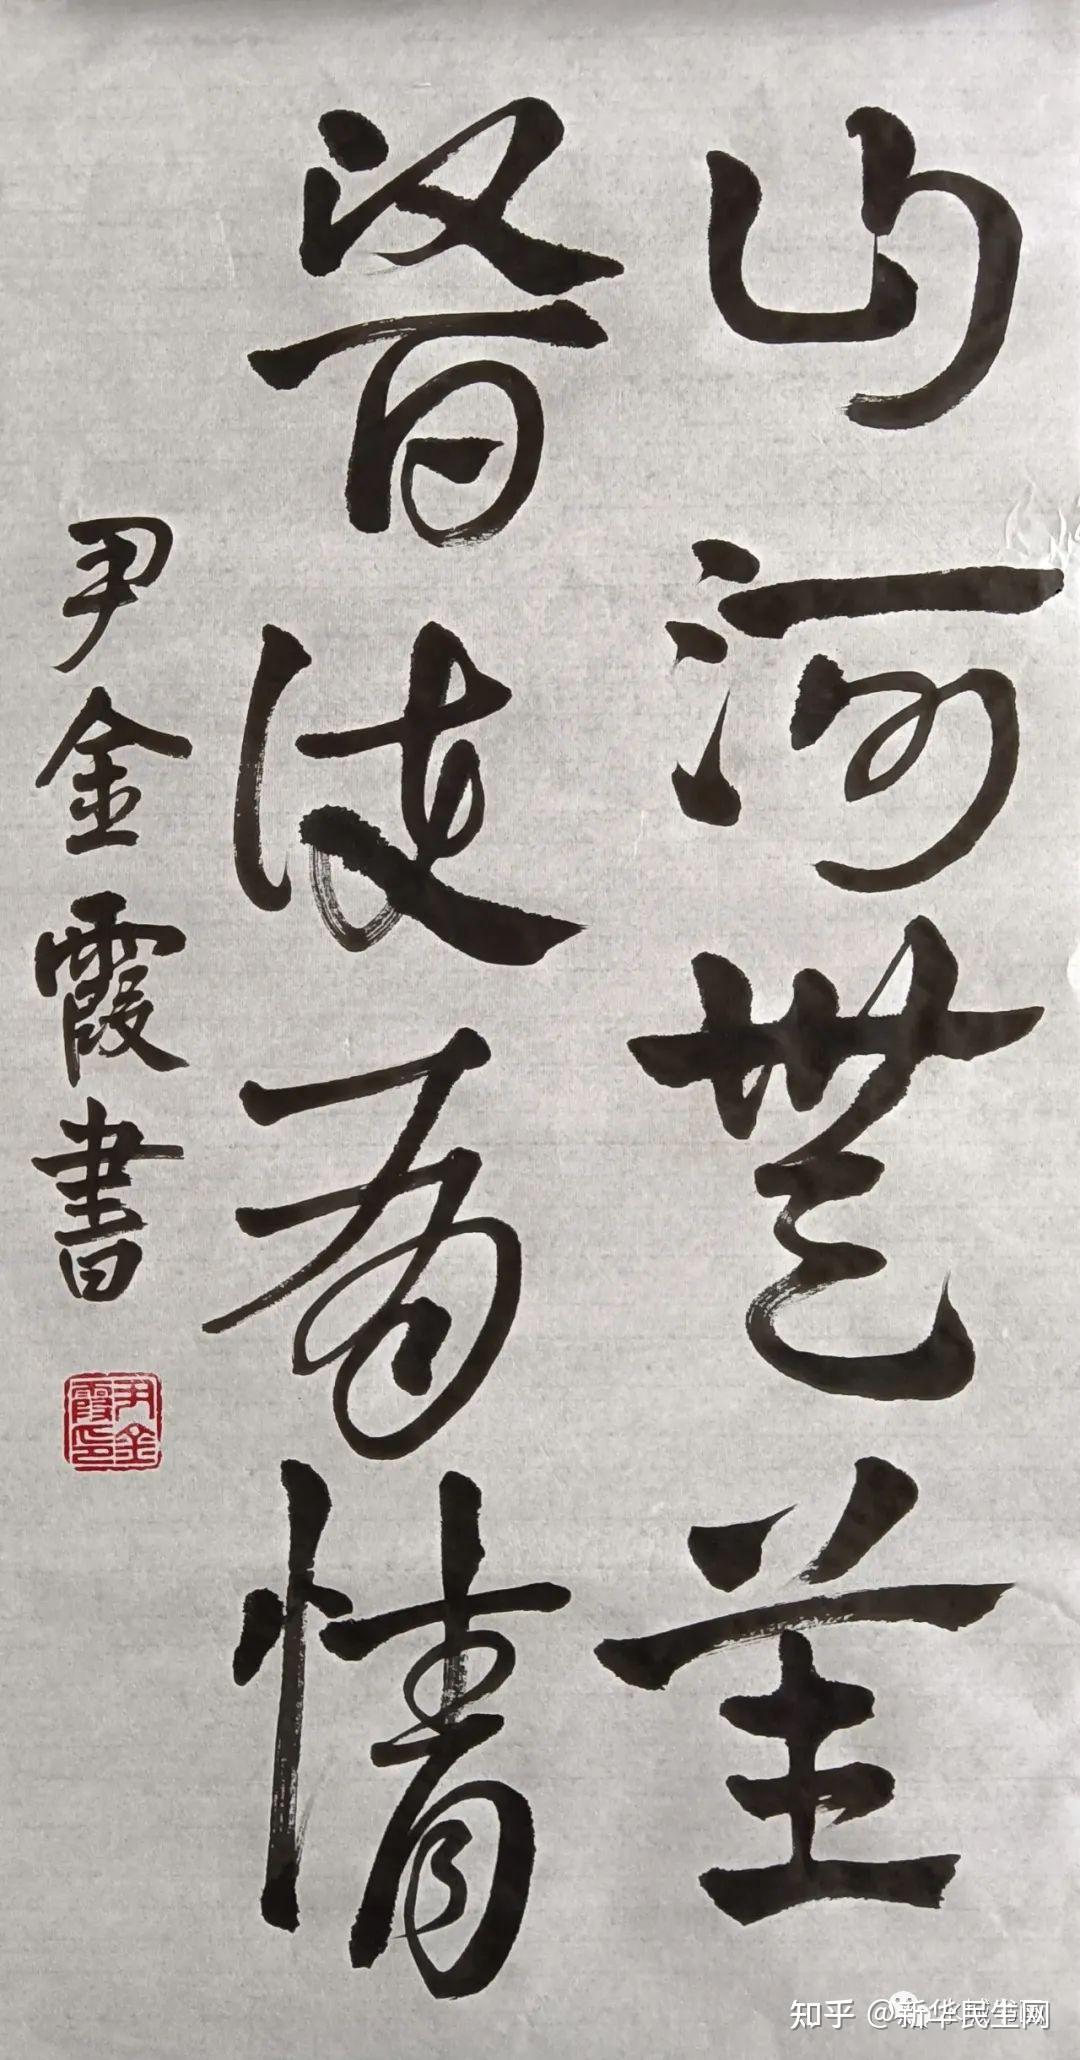 山河無
醫徒有情
尹金霞書
尹金霞印
知乎 @新华民生网